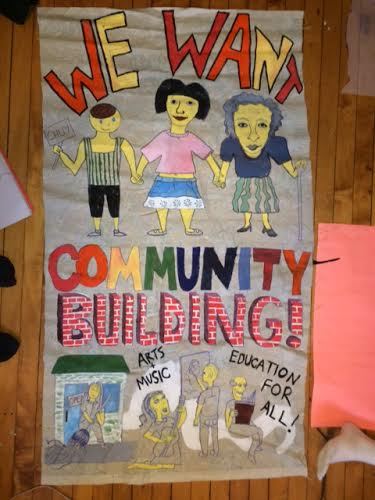 WE WANT
COMMUNITY
BUILDING!
ARTS
+
MUSIC
EDUCATION
FOR
ALL!
OPEN